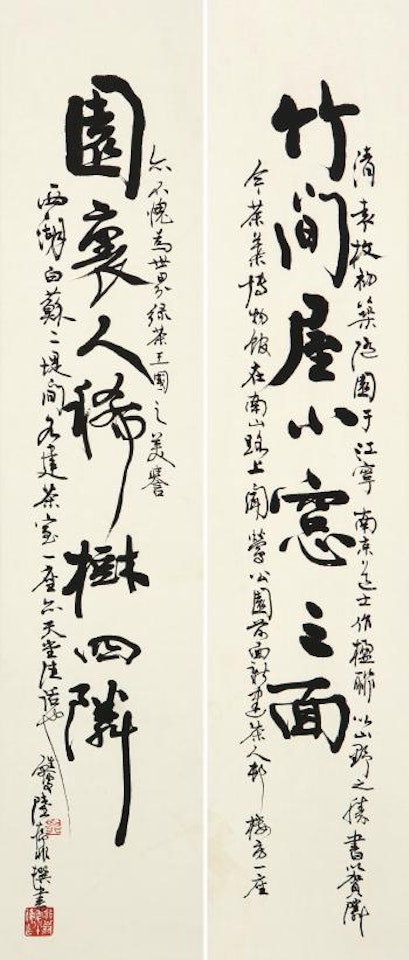 竹間屋小窓三面
清袁枚初築随園于江寧南京道士作楹聯以山野之勝書以賀隣
今茶葉博物館在南山路上聞鶯公園前面新建茶人邨楼房一座
園裏人稀樹四隣
亦不愧為世界绿茶王國之美譽
西湖白蘇二堤間另建茶室一座亦天堂佳話 陸 撰書